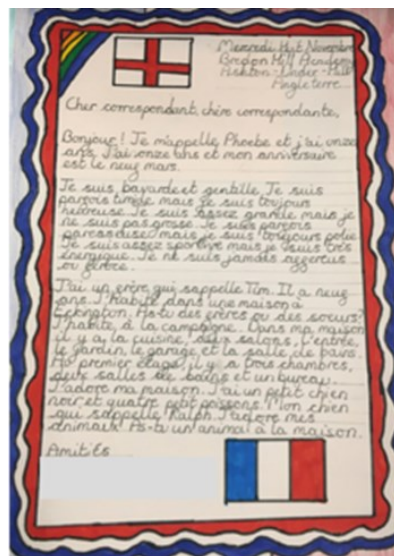 Mercredi Huit Novembre
Bredon Hill Academy
Ashton-Under-Hill
Angleterre
Cher correspondant, chère correspondante,
Bonjour! Je m'appelle Phoebe et j'ai onze
ans. J'ai onze ans et mon anniversaire
est le neuf mars.
Je suis bavarde et gentille. Je suis
parfois timide mais je suis toujours
heureuse. Je suis assez grande mais je
ne suis pas grosse. Je suis parfois
paresseuse mais je suis toujours polie.
Je suis assez sportive mais je suis très
énergique. Je ne suis jamais
ou
J'ai un frère qui s'appelle Tim. Il a neuf
ans. J'habite dans une maison à
Eckington. As-tu des frères ou des soeurs?
J'habite à la campagne. Dans ma maison
il y a la cuisine, deux salons, l'entrée,
le jardin, le garage et la salle de bains.
Au premier étage, il y a trois chambres,
deux salles de bains et un bureau.
J'adore ma maison. J'ai un petit chien
noir et quatre petit poissons. Mon chien
qui s'appelle Ralph. J'adore mes
animaux. As-tu un animal à la maison.
Amitiés